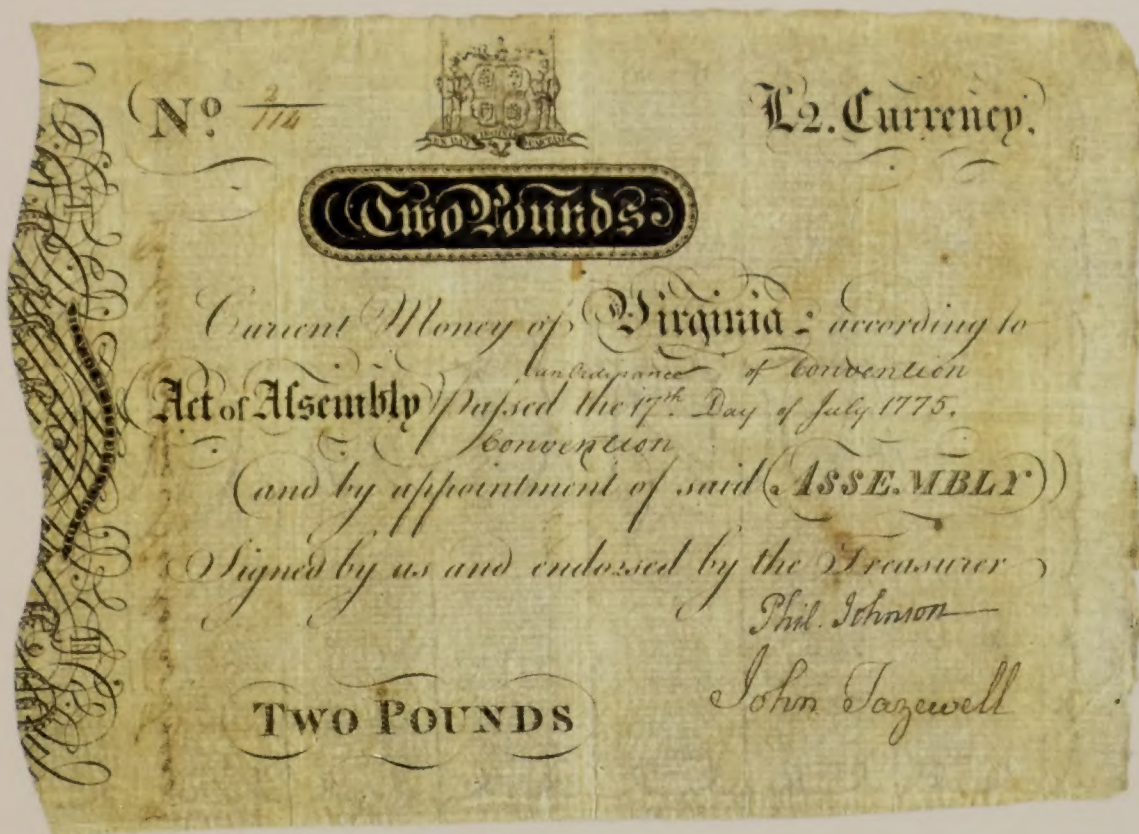 No. 2/114
£2. Currency.
Two Pounds
Current Money of Virginia : according to
an Ordinance of Convention
Act of Aſsembly paſsed the 17th. Day of July 1775.
Convention
(and by appointment of said (ASSEMBLY))
Signed by us and endorsed by the Treasurer
Phil. Johnson
John Tazewell
TWO POUNDS